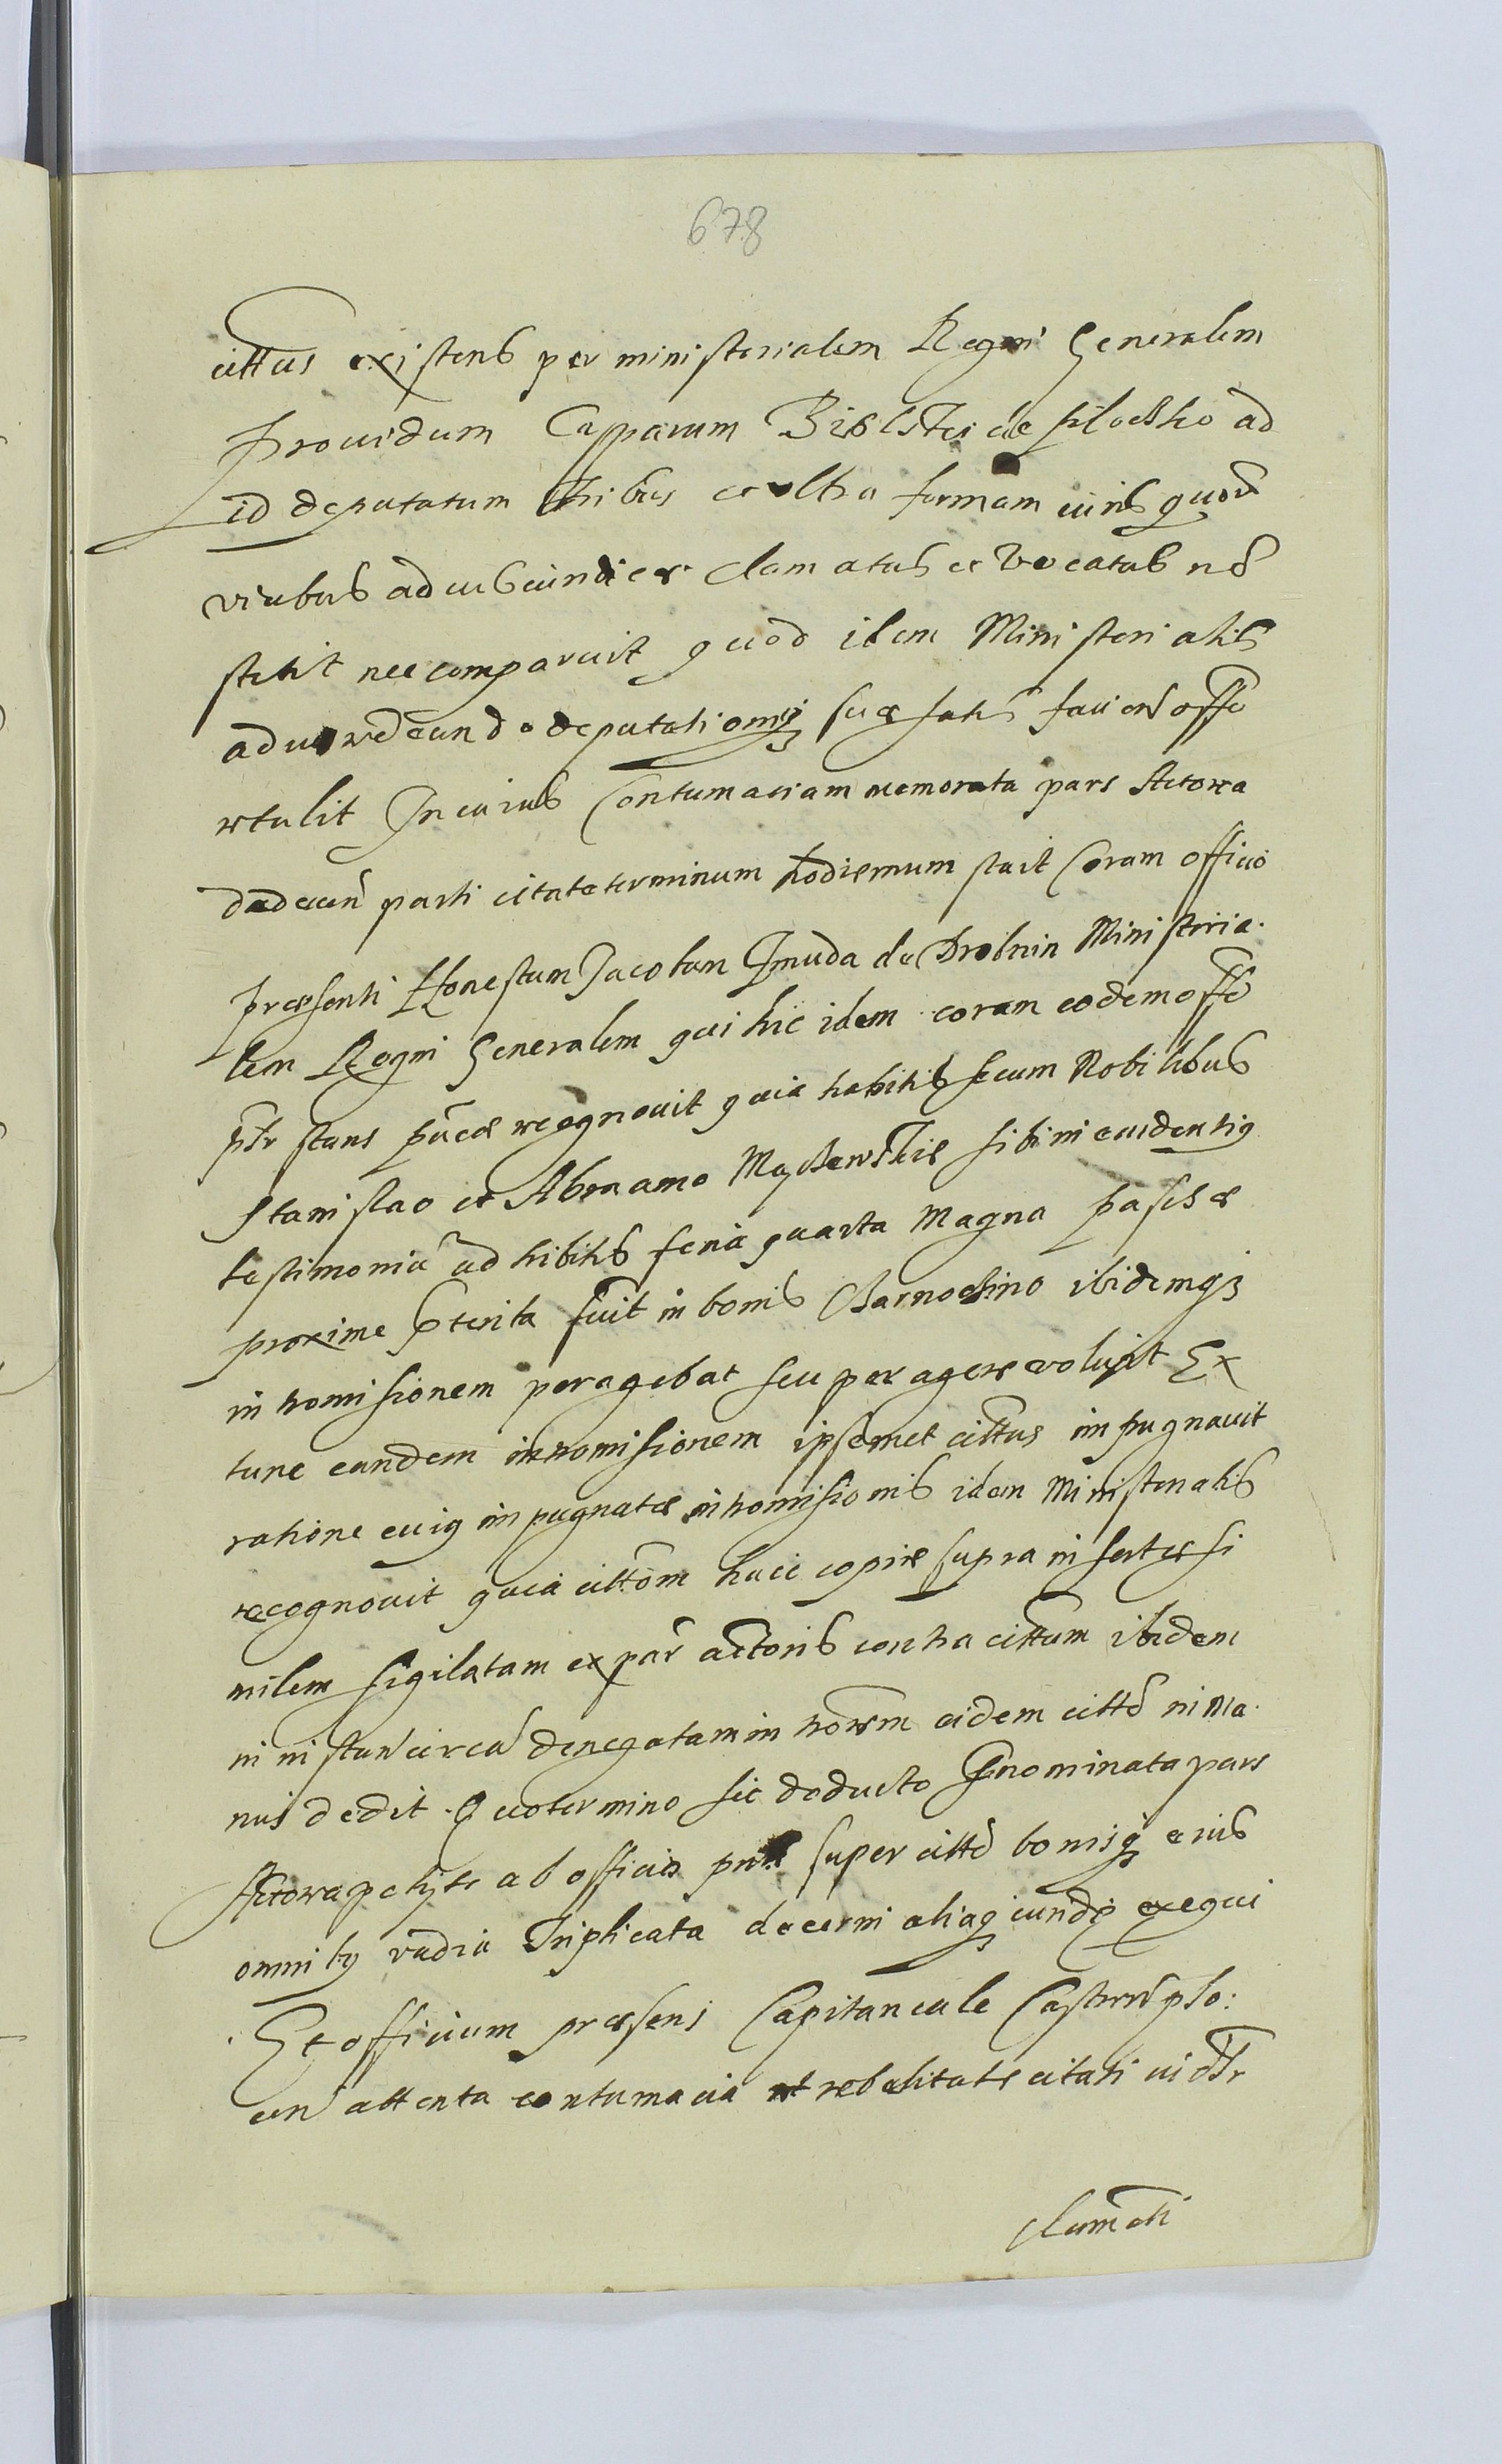 678
cittus existens per ministerialem Regni Generalem
Prouidum Casparum de Plocsko ad
id deputatum tribus et ultra formam iuris quatr
vicibus ad iudicium clamatus et vocatus no
stetit nec comparuit quod idem Ministerialis
deputationiq suae satis faciens offo
retulit In cuius Contumaciam memorata pars Actorea
parti citatae terminum hodiernum statuit Coram officio
praesenti Honestum Jacobum Gmuda de Drobnin Ministeria
lem Regni Generalem qui hic idem coram eodem offo
pntr stans recognouit quia habitis secum Nobilibus
Stanislao et Abraamo sibi in euidentiq
testimoniu adhibitis feria quarta Magna paschae
proxime pterita fuit in bonis ibidemq3
intromisionem peragebat seu peragere voluit Ex
tunc eandem intromisionem ipsemet cittus impugnauit
ratione cuiq impugnatae intromisionis idem Ministerialis
recognouit quia cittom huic copiae supra insertae si
milem sigilatam ex par actoris contra cittum ibidem
in instan circa denegatam introm eidem citto in ma
nus dedit Quo termino sic deducto pnominata pars
Actorea petijt ab officio pnti super citto bonisq eius
omnibq vadia Triplicata decerni aliaq iundq exequi
Et officium praesens Capitaneale Castren plo:
cen attenta contumacia et rebelitate citati uidtr
clamati